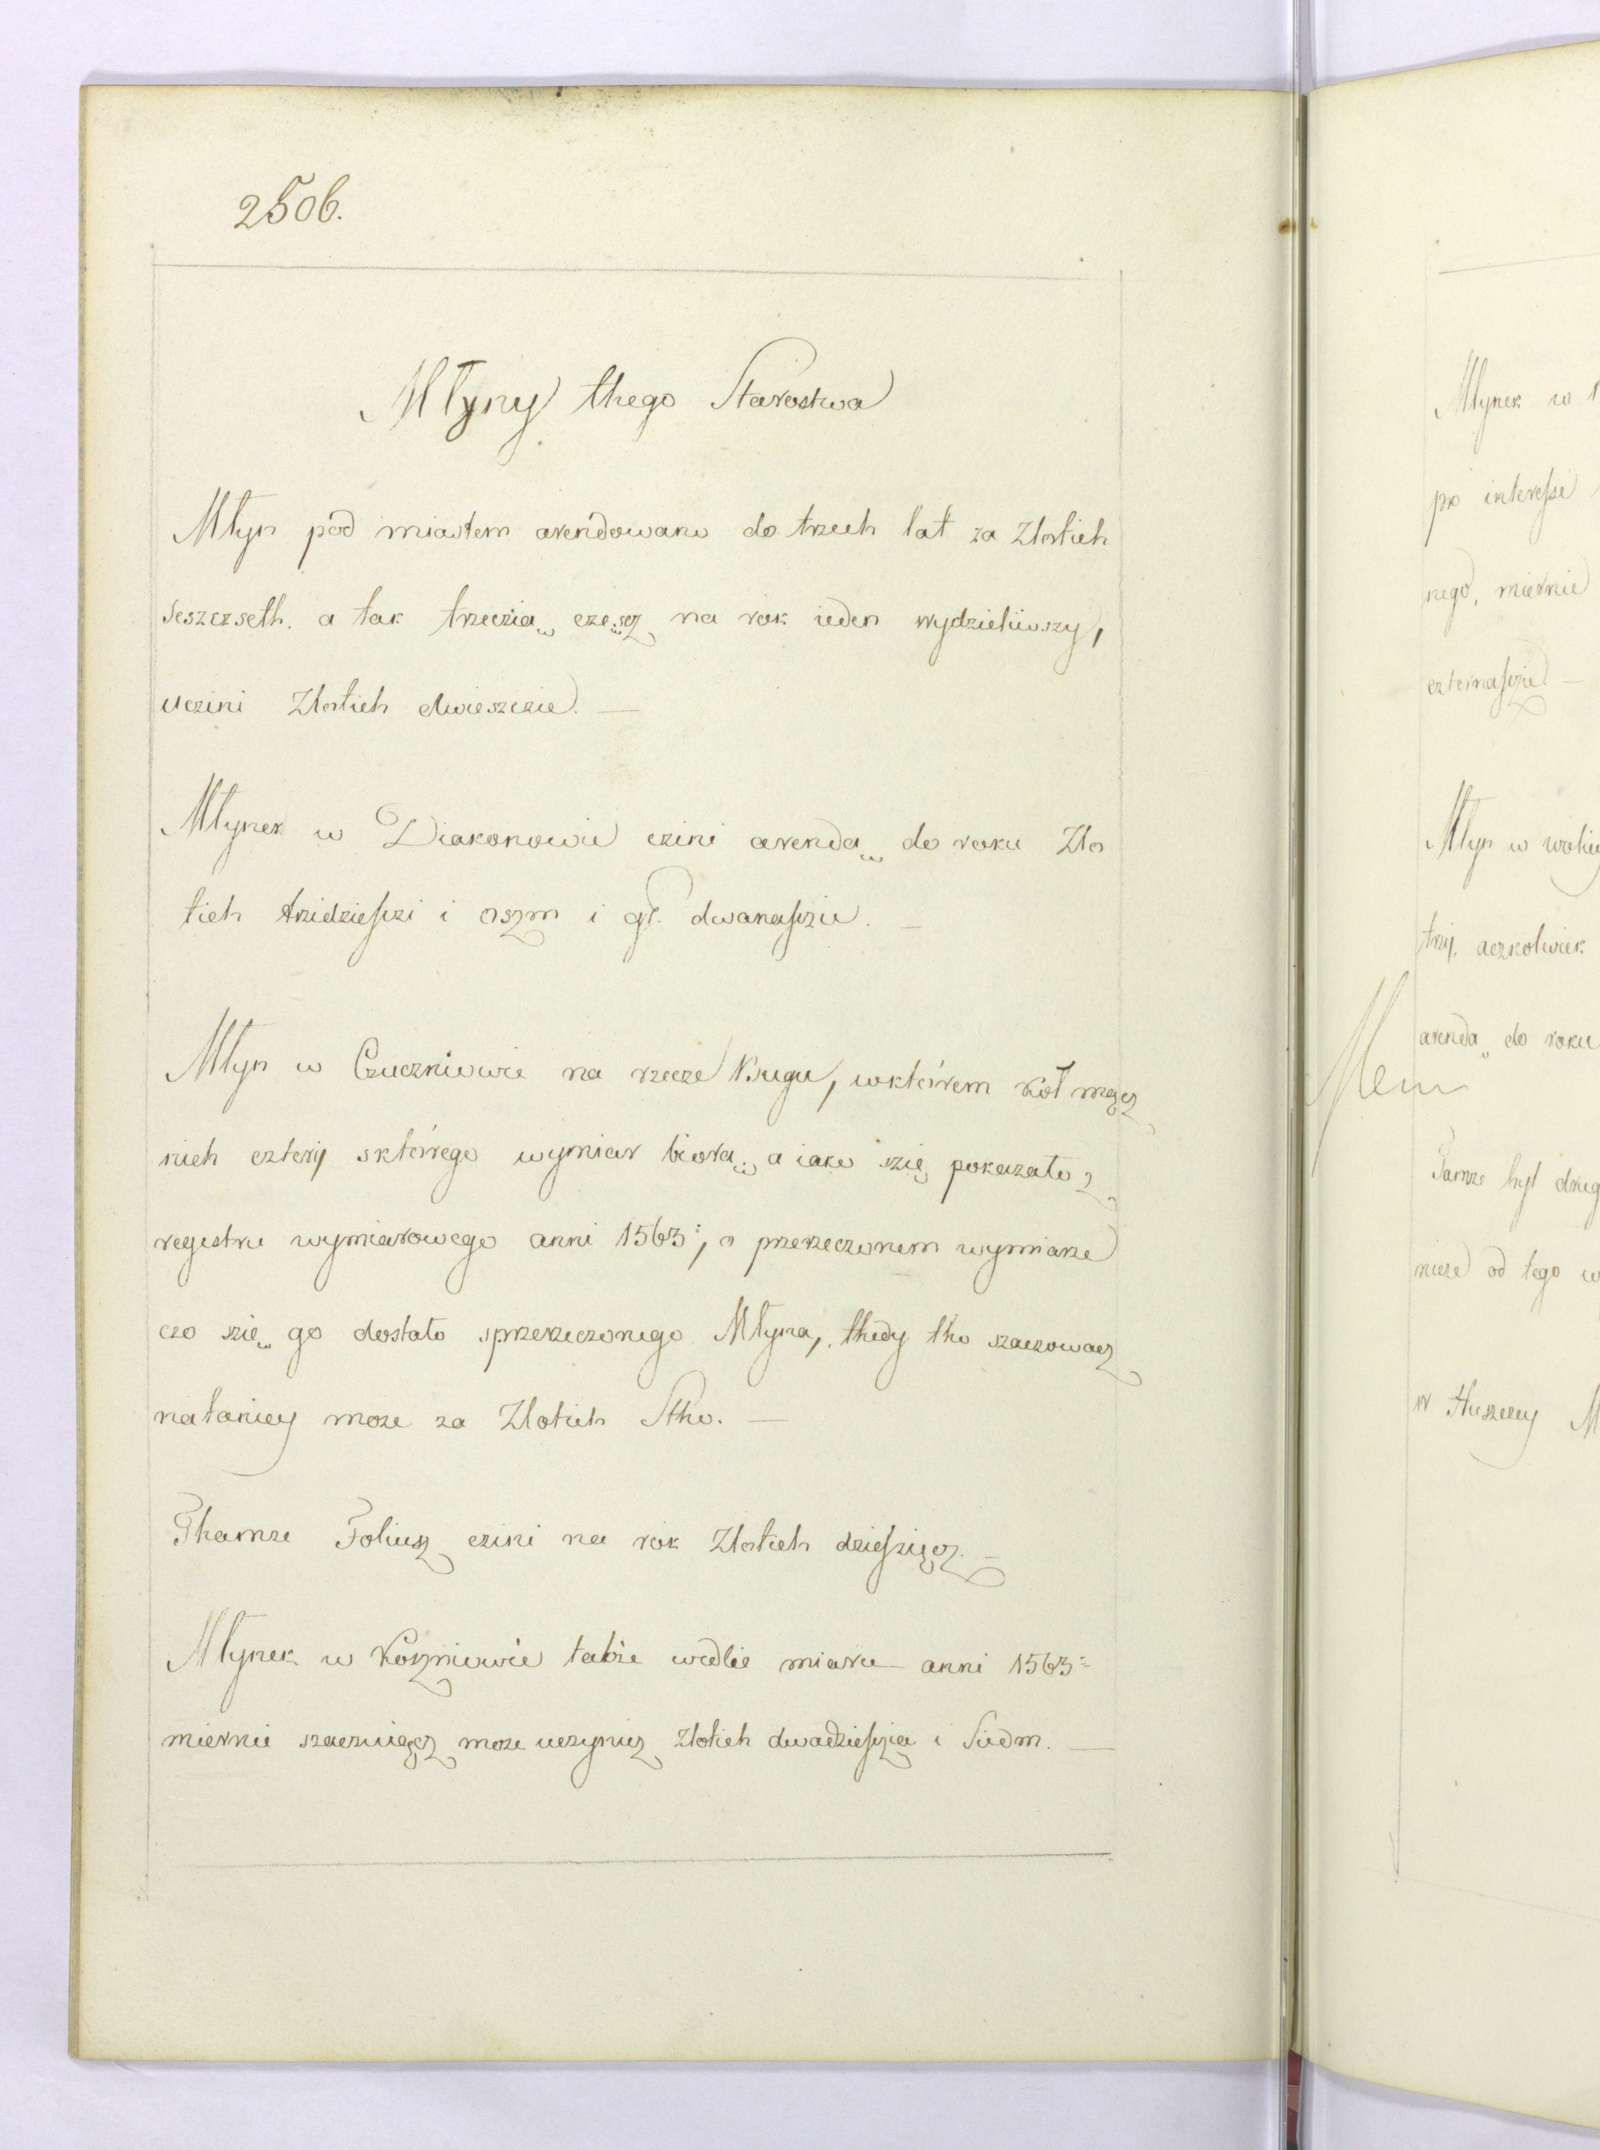 2506.
Młyny thego Starostwa
Młyn pod miastem arendowano do trzech lat za Złotich
seszczseth. a tak trzeczią częscz na rok ieden wydzieliwszy,
uczini Złotich dwiesczie. —
Młynek w Diakonowie czini arendą do roku Zło
tich trzidzieſzi i oszm i gr. dwanaſzie. —
Młyn w Czuczniewie na rzecze Bugu, wktórem kół mącz
nich cztery sktórego wymiar biorą, a iako szię pokazało z
regestru wymiarowego anni 1563: o przerzeczonem wymiarze
czo szię go dostało sprzerzeczonego Młyna, thedy tho szaczowacz
nataniey może za Złotich Stho. —
Thamże Foliusz czini na rok Złotich dzieſziącz. —
Młynek w Kozniewie także wedlie miaru anni 1563:
miernie szaczuiącz może uczynicz Złotich dwadzieſzia i Siedm. —
Młynek w
pro intereſse
nego, miernie
czternaſzie —
Młyn w
trzy. aczkolwiek
arendą do roku
Tamże był drug
nieże od tego w
w tłuszczey M